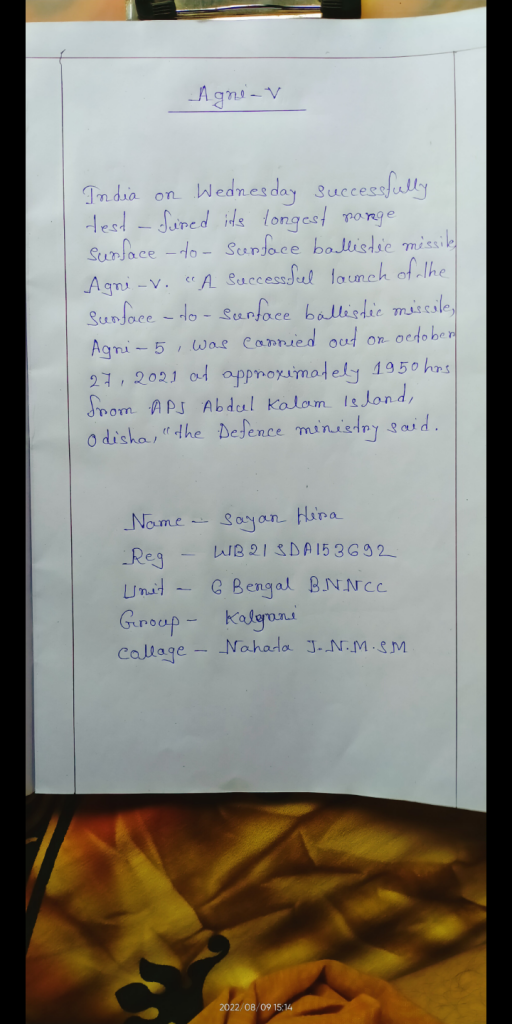 Agni - V
India on Wednesday successfully
test - fired its longest range
Surface - to - Surface ballistic missile
Agni - V. "A Successful launch of the
Surface - to - Surface ballistic missile,
Agni - 5, was carried out on october
27, 2021 at approximately 1950 hrs
from APJ Abdul Kalam Island,
Odisha," the Defence ministry said.
Name - Sayan Hira
Reg - WB21SDA153692
Unit - 6 Bengal BN NCC
Group - Kalyani
Callage - Nahata J.N.M.SM
2022/08/09 15:14